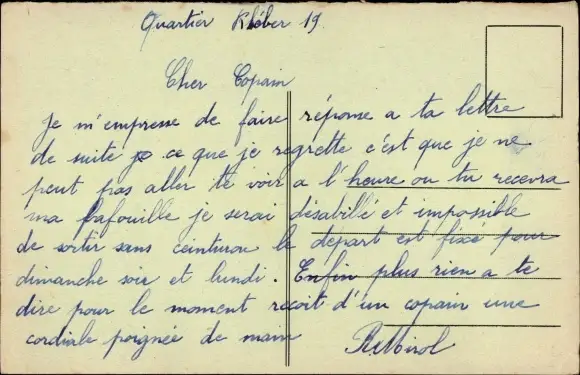 Quartier Kléber 19
Cher Copain
Je m'empresse de faire réponse a ta lettre
de suite ce que je regrette c'est que je ne
peut pas aller te voir a l'heure ou tu recevra
ma fafouille je serai désabillé et impossible
de sortir sans ceinturon le depart est fixé pour
dimanche soir et lundi. Enfin plus rien a te
dire pour le moment recoit d'un copain une
cordiale poignée de main